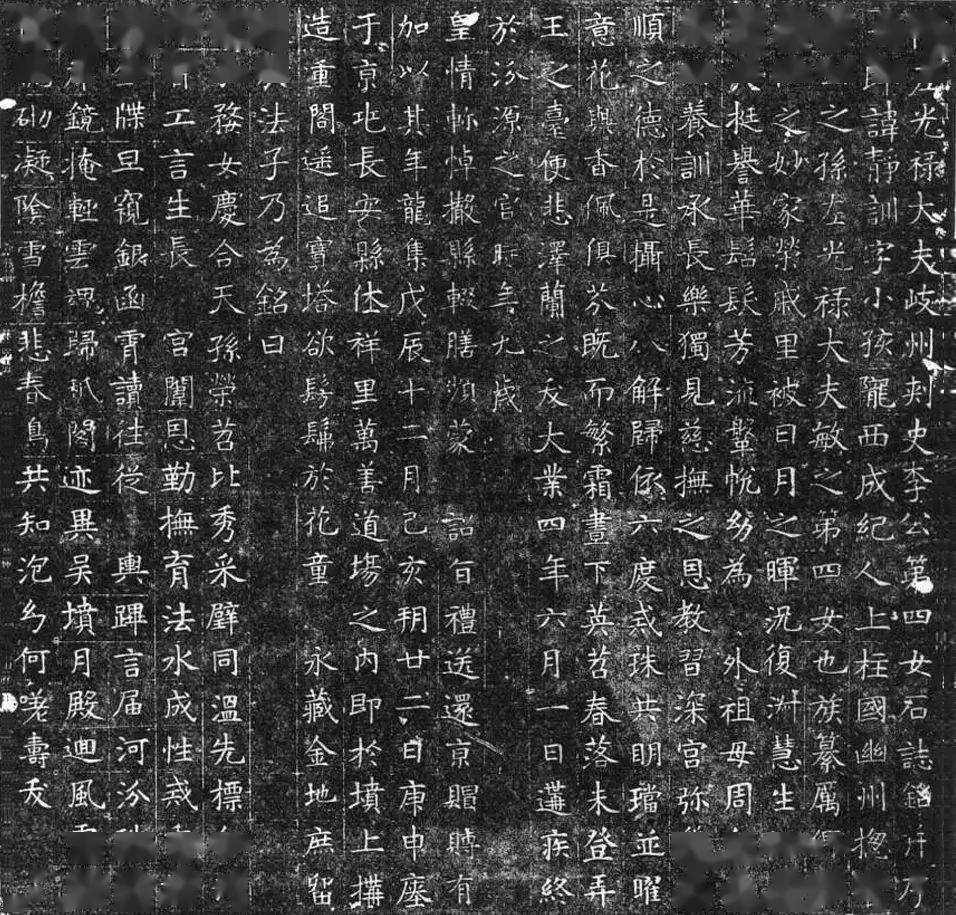 左光祿大夫岐州刾史李公第四女石誌銘并
郎諱靜訓字小孩隴西成紀人上柱國幽州摠
之孫左光祿大夫敏之第四女也族纂厲
之妙家榮戚里被日月之暉況復淑慧生
挺譽華髫髮芳流鞶帨幼為 外祖母周
養訓承長樂獨見慈撫之恩教習深宮弥
順之德於是攝心八解歸依六度戒珠共明璫並曜
意花與香佩俱芬既而繁霜晝下英苕春落未登弄
玉之臺便悲澤蘭之夭大業四年六月一日遘疾終
於汾源之宮時年九歲
皇情軫悼撤縣輟膳頻蒙 詔旨禮送還京賵賻有
加以其年龍集戊辰十二月己亥朔廿二日庚申瘞
于京兆長安縣休祥里萬善道場之內即於墳上搆
造重閣遥追寶塔欲髣髴於花童 永藏金地庶留
法子乃為銘曰
婺女慶合天孫榮苕比秀采璧同溫先標
工言生長 宮闈恩勤撫育法水成性戒
牒旦窺銀函霄讀往從 輿蹕言届河汾
鏡掩輕雲魂歸閤迹異吳墳月殿迴風
砌凝陰雪檐悲春鳥共知泡幻何嗟壽夭